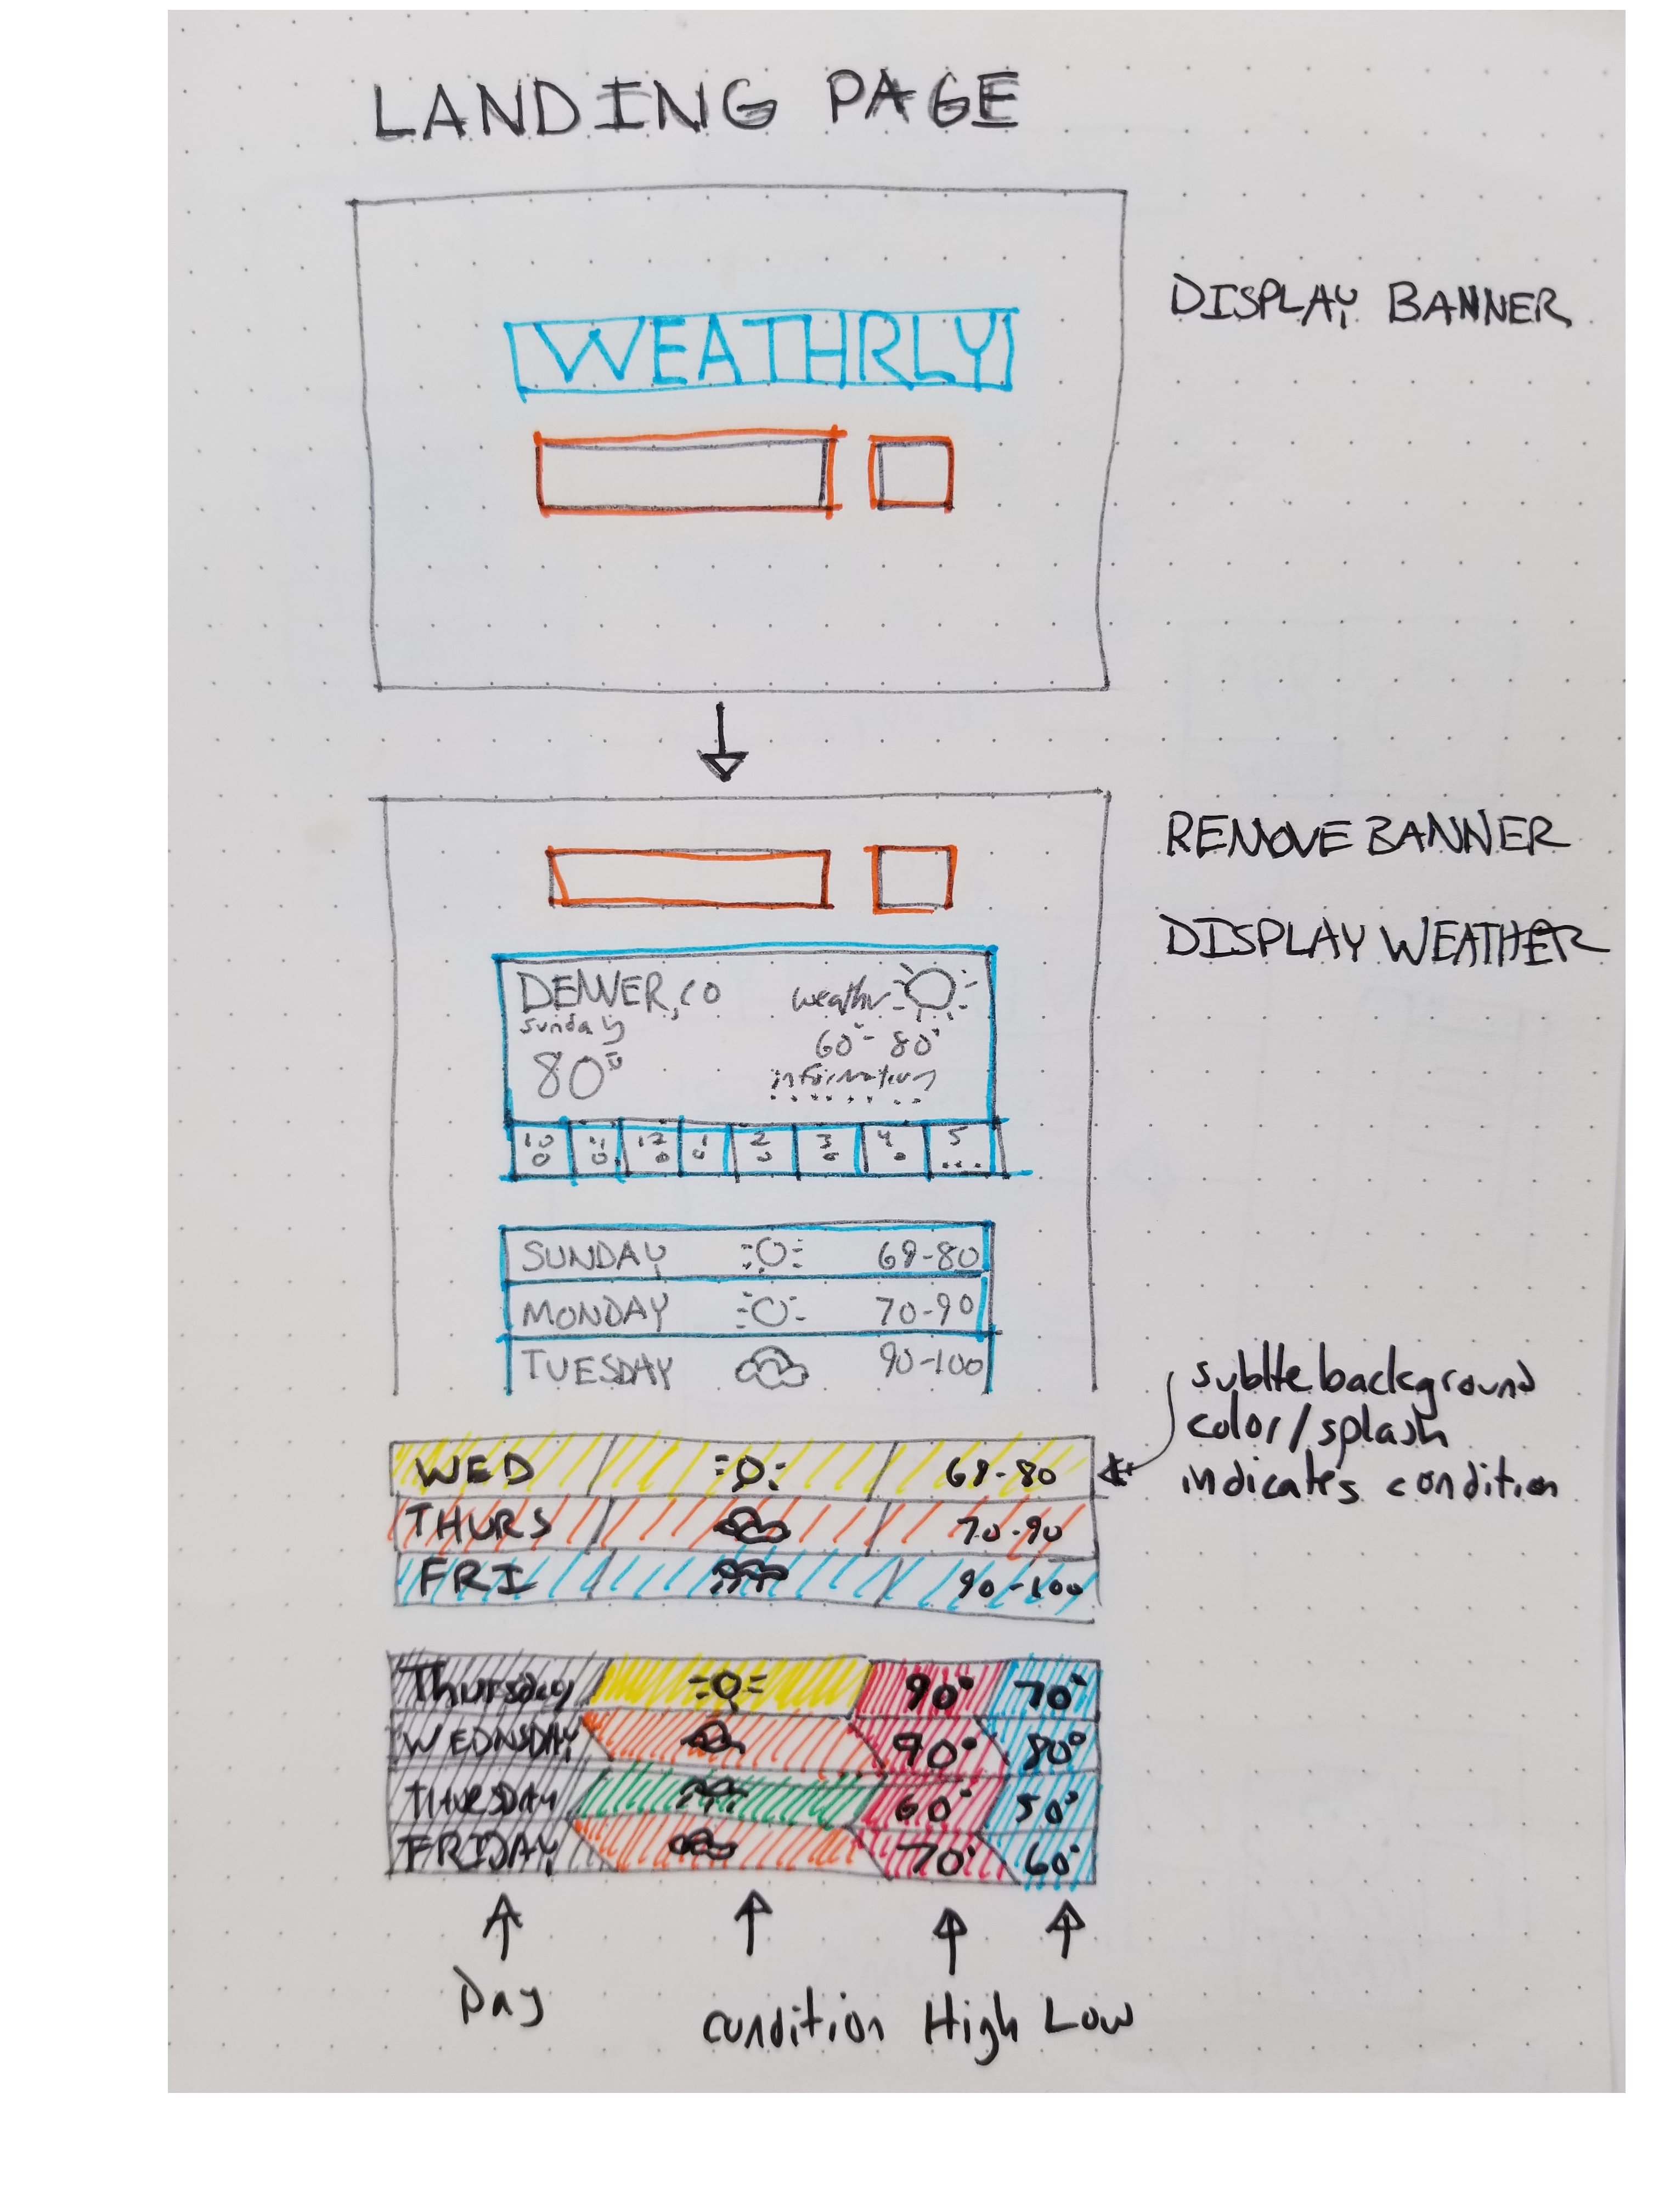 LANDING PAGE
DISPLAY BANNER
WEATHRLY
REMOVE BANNER
DISPLAY WEATHER
DENVER, CO
weathr
sunday
60° - 80°
80°
information
10 11 12 1 2 3 4 5
...
SUNDAY 69-80
MONDAY 70-90
TUESDAY 90-100
sublte background
color/splash
indicates condition
WED 69-80
THURS 70-90
FRI 90-100
Thursday 90° 70°
WEDNSDAY 90° 80°
THURSDAY 60° 50°
FRIDAY 70° 60°
Day
condition High Low